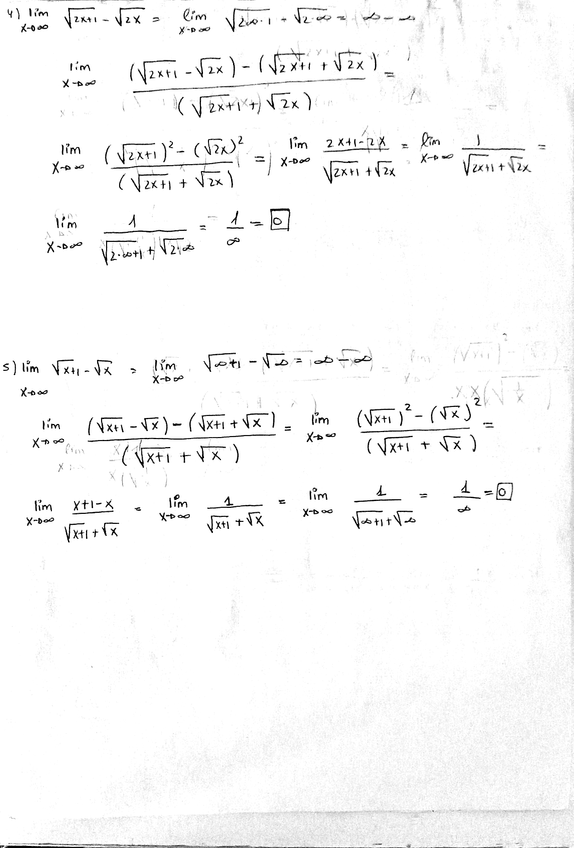 4) lim x→∞ √(2x+1) - √(2x) = lim x→∞ √(2∞+1) - √(2·∞) = ∞ - ∞
lim x→∞ ((√(2x+1) - √(2x)) - (√(2x+1) + √(2x))) / (√(2x+1) + √(2x)) =
lim x→∞ ((√(2x+1))² - (√(2x))²) / (√(2x+1) + √(2x)) = lim x→∞ (2x+1-2x) / (√(2x+1) + √(2x)) = lim x→∞ 1 / (√(2x+1) + √(2x)) =
lim x→∞ 1 / (√(2·∞+1) + √(2·∞)) = 1/∞ = 0
5) lim x→∞ √(x+1) - √x = lim x→∞ √(∞+1) - √∞ = ∞ - ∞
lim x→∞ ((√(x+1) - √x) - (√(x+1) + √x)) / (√(x+1) + √x) = lim x→∞ ((√(x+1))² - (√x)²) / (√(x+1) + √x) =
lim x→∞ (x+1-x) / (√(x+1) + √x) = lim x→∞ 1 / (√(x+1) + √x) = lim x→∞ 1 / (√(∞+1) + √∞) = 1/∞ = 0